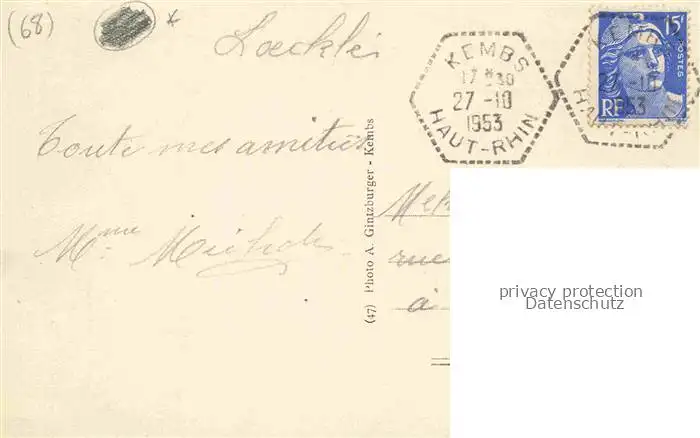 (68)
KEMBS
17 30
27-10
1953
HAUT-RHIN
15F
POSTES
RF
Toute mes amitiés
Mme
(47) Photo A. Gintzburger - Kembs
rue
à
privacy protection
Datenschutz